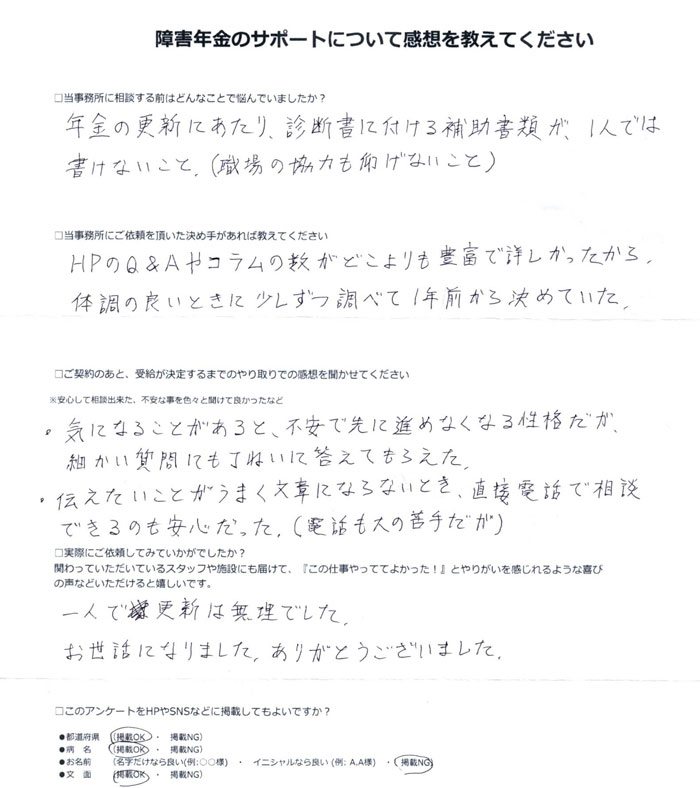 障害年金のサポートについて感想を教えてください
□当事務所に相談する前はどんなことで悩んでいましたか？
年金の更新にあたり、診断書に付ける補助書類が、1人では
書けないこと。(職場の協力も仰げないこと)
□当事務所にご依頼を頂いた決め手があれば教えてください
HPのQ&Aやコラムの数がどこよりも豊富で詳しかったから。
体調の良いときに少しずつ調べて1年前から決めていた。
□ご契約のあと、受給が決定するまでのやり取りでの感想を聞かせてください
※安心して相談出来た、不安な事を色々と聞けて良かったなど
・気になることがあると、不安で先に進めなくなる性格だが、
細かい質問にも丁ねいに答えてもらえた。
・伝えたいことがうまく文章にならないとき、直接電話で相談
できるのも安心だった。(電話も大の苦手だが)
□実際にご依頼してみていかがでしたか？
関わっていただいているスタッフや施設にも届けて、『この仕事やっててよかった！』とやりがいを感じれるような喜び
の声などいただけると嬉しいです。
一人で更新は無理でした。
お世話になりました。ありがとうございました。
□このアンケートをHPやSNSなどに掲載してもよいですか？
●都道府県 （掲載OK ・ 掲載NG）
●病 名 （掲載OK ・ 掲載NG）
●お名前 （名字だけなら良い(例:○○様) ・ イニシャルなら良い (例: A.A様) ・ 掲載NG）
●文 面 （掲載OK ・ 掲載NG）